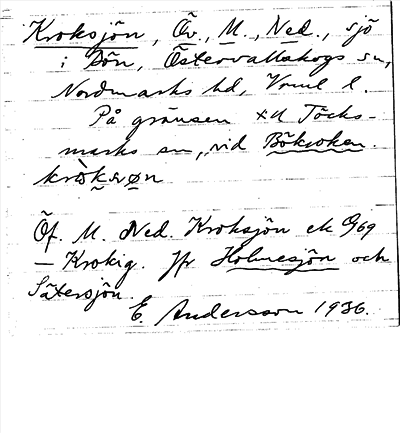 Kroksjön, Öv., M., Ned., sjö
i Dön, Östervallskogs sn,
Nordmarks hd, Vrml l.
På gränsen till Töcks-
marks sn, vid Bökroken.
Öf. M. Ned. Kroksjön ek G69
— Krokig. Jfr Holmesjön och
Sätersjön
E. Andersson 1936.